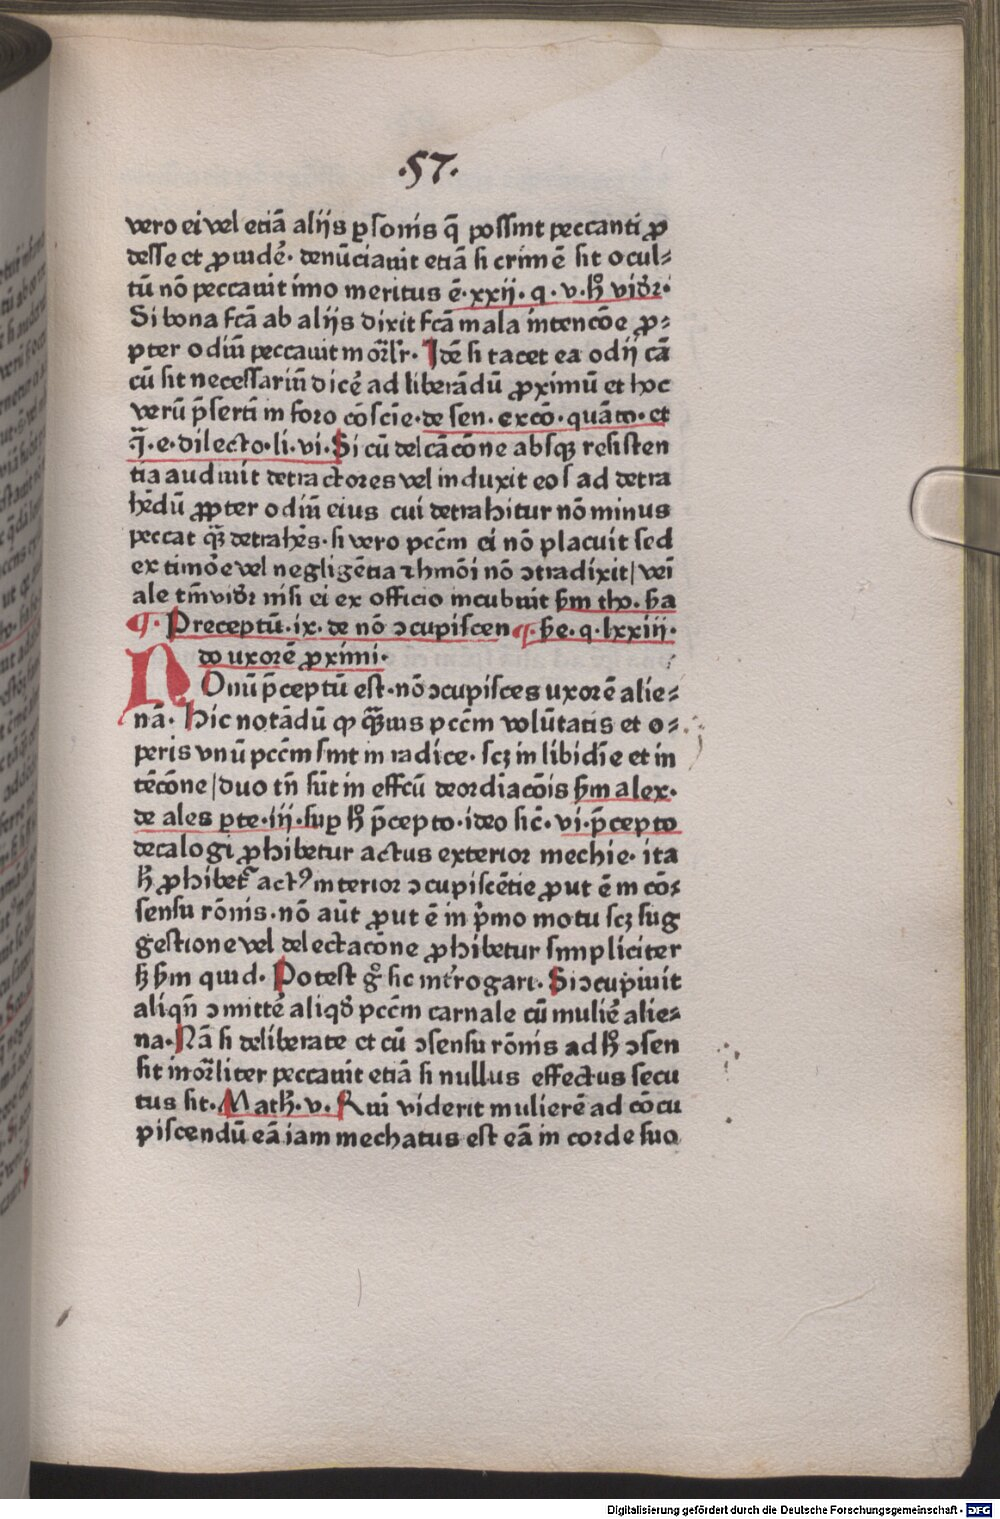 .57.
vero ei vel etiā alijs ꝑsonis q̄ possint peccanti ꝓ
desse et ꝓuidē. denūciauit etiā si crimē sit ocul⸗
tū nō peccauit imo meritus ē. xxij. q. v. hͦ videꝛ.
Si bona fcā ab alijs dixit fcā mala intencōe ꝓ⸗
pter odiū peccauit moꝛl̄r. Idē si tacet ea odij cā
cū sit necessariū dicē ad liberādū ꝓximū et hoc
verū p̄sertī in foro cōscīe. de sen. excō. quāto. et
q̄. e. dilecto. li. vi. Si cū delcācōne absqꝫ resisten
tia audiuit detractores vel induxit eos ad detra
hēdū ꝓpter odiū eius cui detrahitur nō minus
peccat qꝫ̄ detrahēs. si vero pccm̄ ei nō placuit sed
ex timoē vel negligētia ꝛ hmōi nō ↄtradixit/ veī
ale tm̄ videꝛ nisi ei ex officio incubuit ẜm tho. ẜa
¶. Preceptū. ix. de nō ↄcupiscen ¶. ẜe. q. lxxiij.
do uxorē ꝓximi.
NOnū p̄ceptū est. nō ↄcupisces uxorē alie⸗
nā. Hic notādū ꝙ qͣꝫuis pccm̄ volūtatis et o⸗
peris vnū pccm̄ sint in radice. scꝫ in libidīe et in
tēcōne/ duo tn̄ sūt in effcū deordiacōis ẜm alex.
de ales ꝑte. iij. suꝑ hͦ p̄cepto. ideo sic̄. vi. p̄cepto
decalogi ꝓhibetur actus exterior mechie. ita
hͦ ꝓhibet᷑ actꝰ interior ↄcupiscētie ꝓut ē in cō⸗
sensu rōnis. nō aūt ꝓut ē in p̄mo motu scꝫ sug
gestione vel delectacōne ꝓhibetur simpliciter
sꝫ ẜm quid. Potest gͦ sic int̄rogari. Si ↄcupiuit
aliqn̄ ↄmittē aliqd̄ pccm̄ carnale cū muliē alie⸗
na. Nā si deliberate et cū ↄsensu rōnis ad hͦ ↄsen
sit moꝛl̄iter peccauit etiā si nullus effectus secu
tus sit. Math. v. Kui viderit mulierē ad cōcu
piscendū eā iam mechatus est eā in corde suo
Digitalisierung gefördert durch die Deutsche Forschungsgemeinschaft - DFG